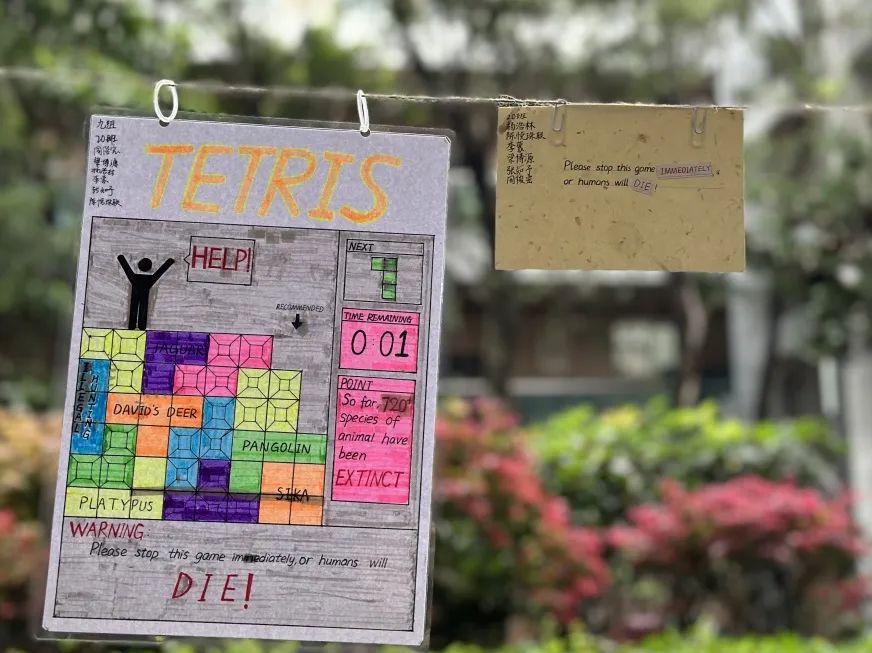 九组
20班
TETRIS
HELP!
RECOMMENDED
NEXT
TIME REMAINING
0:01
POINT
So far, 720+
species of
animal have
been
EXTINCT
JAGUAR
ILLEGAL
HUNTING
DAVID'S DEER
PANGOLIN
SIKA
PLATYPUS
WARNING
Please stop this game immediately, or humans will
DIE!
20班
李寰
梁博源
张知予
Please stop this game IMMEDIATELY,
or humans will DIE!